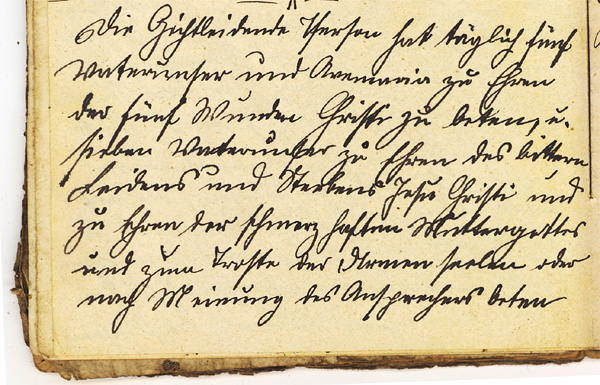 Die Gichtleidende Person hat täglich fünf
Vaterunser und Avemaria zu Ehren
der fünf Wunden Christi zu beten, u.
sieben Vaterunser zu Ehren des bittern
Leidens und Sterbens Jesu Christi und
zu Ehren der schmerzhaften Muttergottes
und zum Troste der Armen seelen oder
nach Meinung des Ansprechers beten